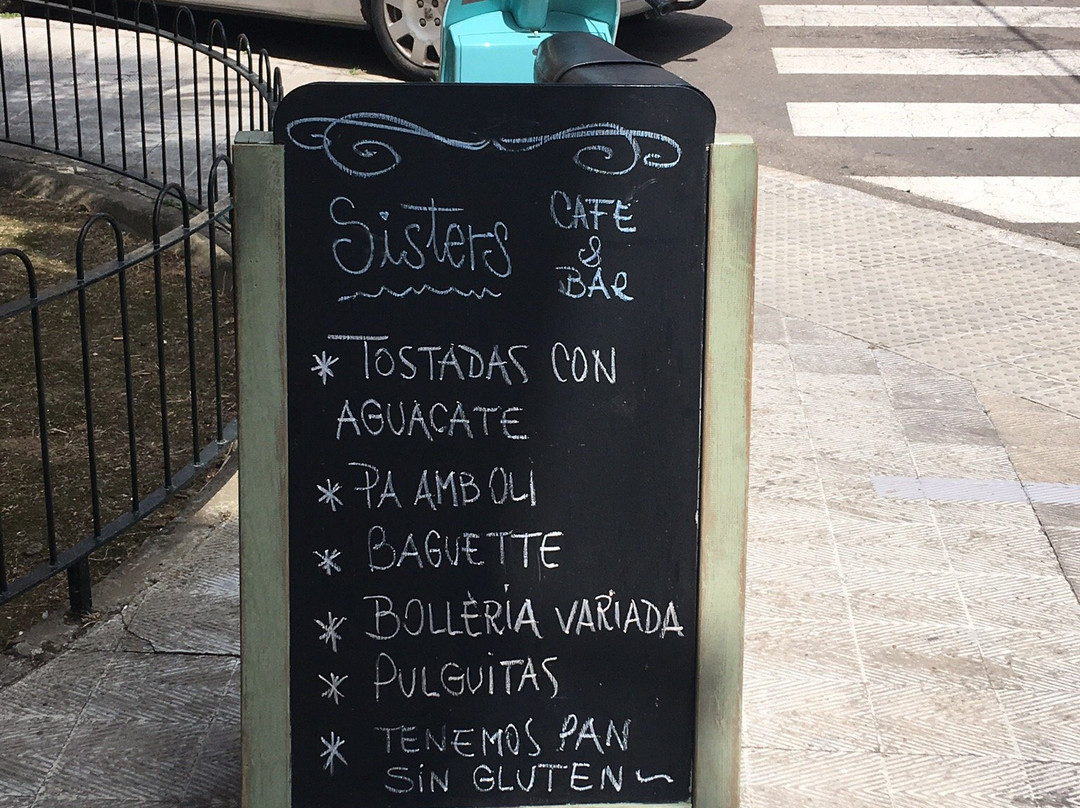 Sisters CAFE
&
BAR
* TOSTADAS CON
AGUACATE
* PA AMB OLI
* BAGUETTE
* BOLLÈRIA VARIADA
* PULGUITAS
* TENEMOS PAN
SIN GLUTEN